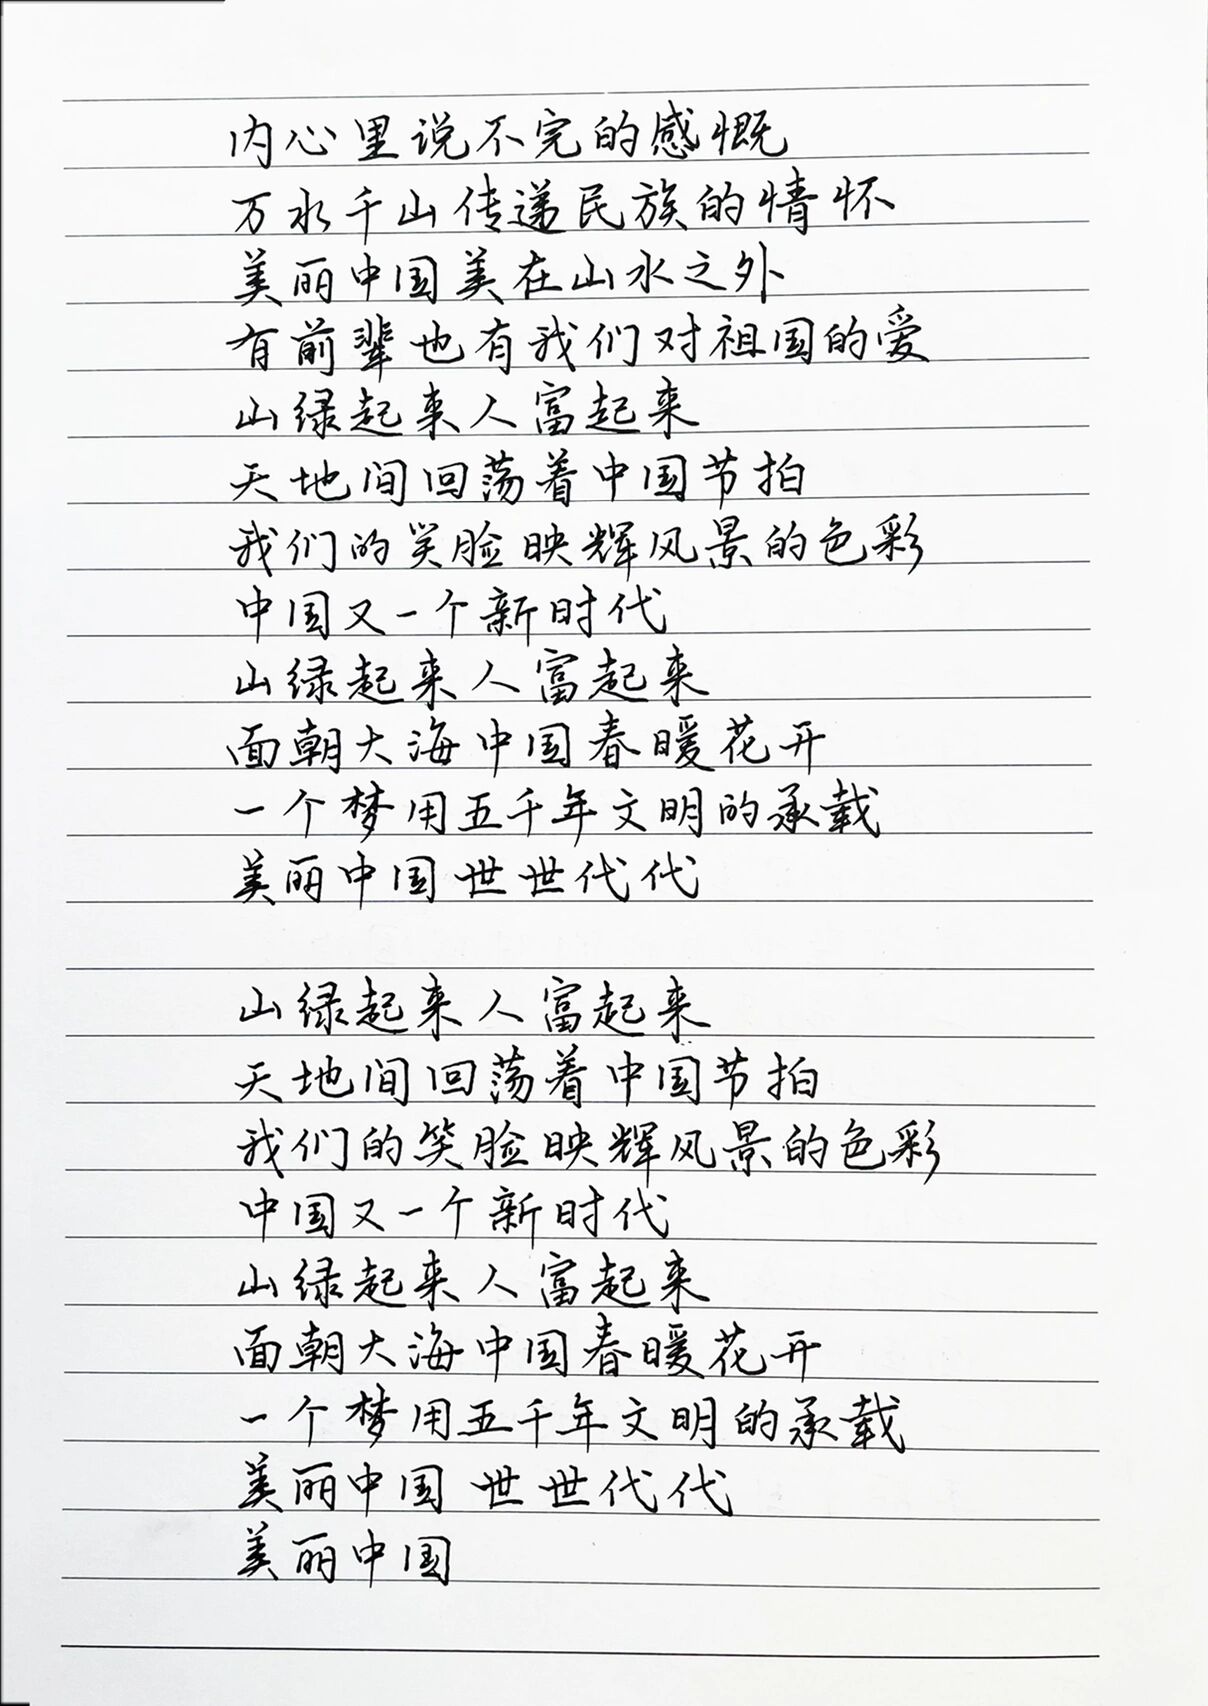 内心里说不完的感慨
万水千山传递民族的情怀
美丽中国美在山水之外
有前辈也有我们对祖国的爱
山绿起来人富起来
天地间回荡着中国节拍
我们的笑脸映辉风景的色彩
中国又一个新时代
山绿起来人富起来
面朝大海中国春暖花开
一个梦用五千年文明的承载
美丽中国世世代代
山绿起来人富起来
天地间回荡着中国节拍
我们的笑脸映辉风景的色彩
中国又一个新时代
山绿起来人富起来
面朝大海中国春暖花开
一个梦用五千年文明的承载
美丽中国世世代代
美丽中国